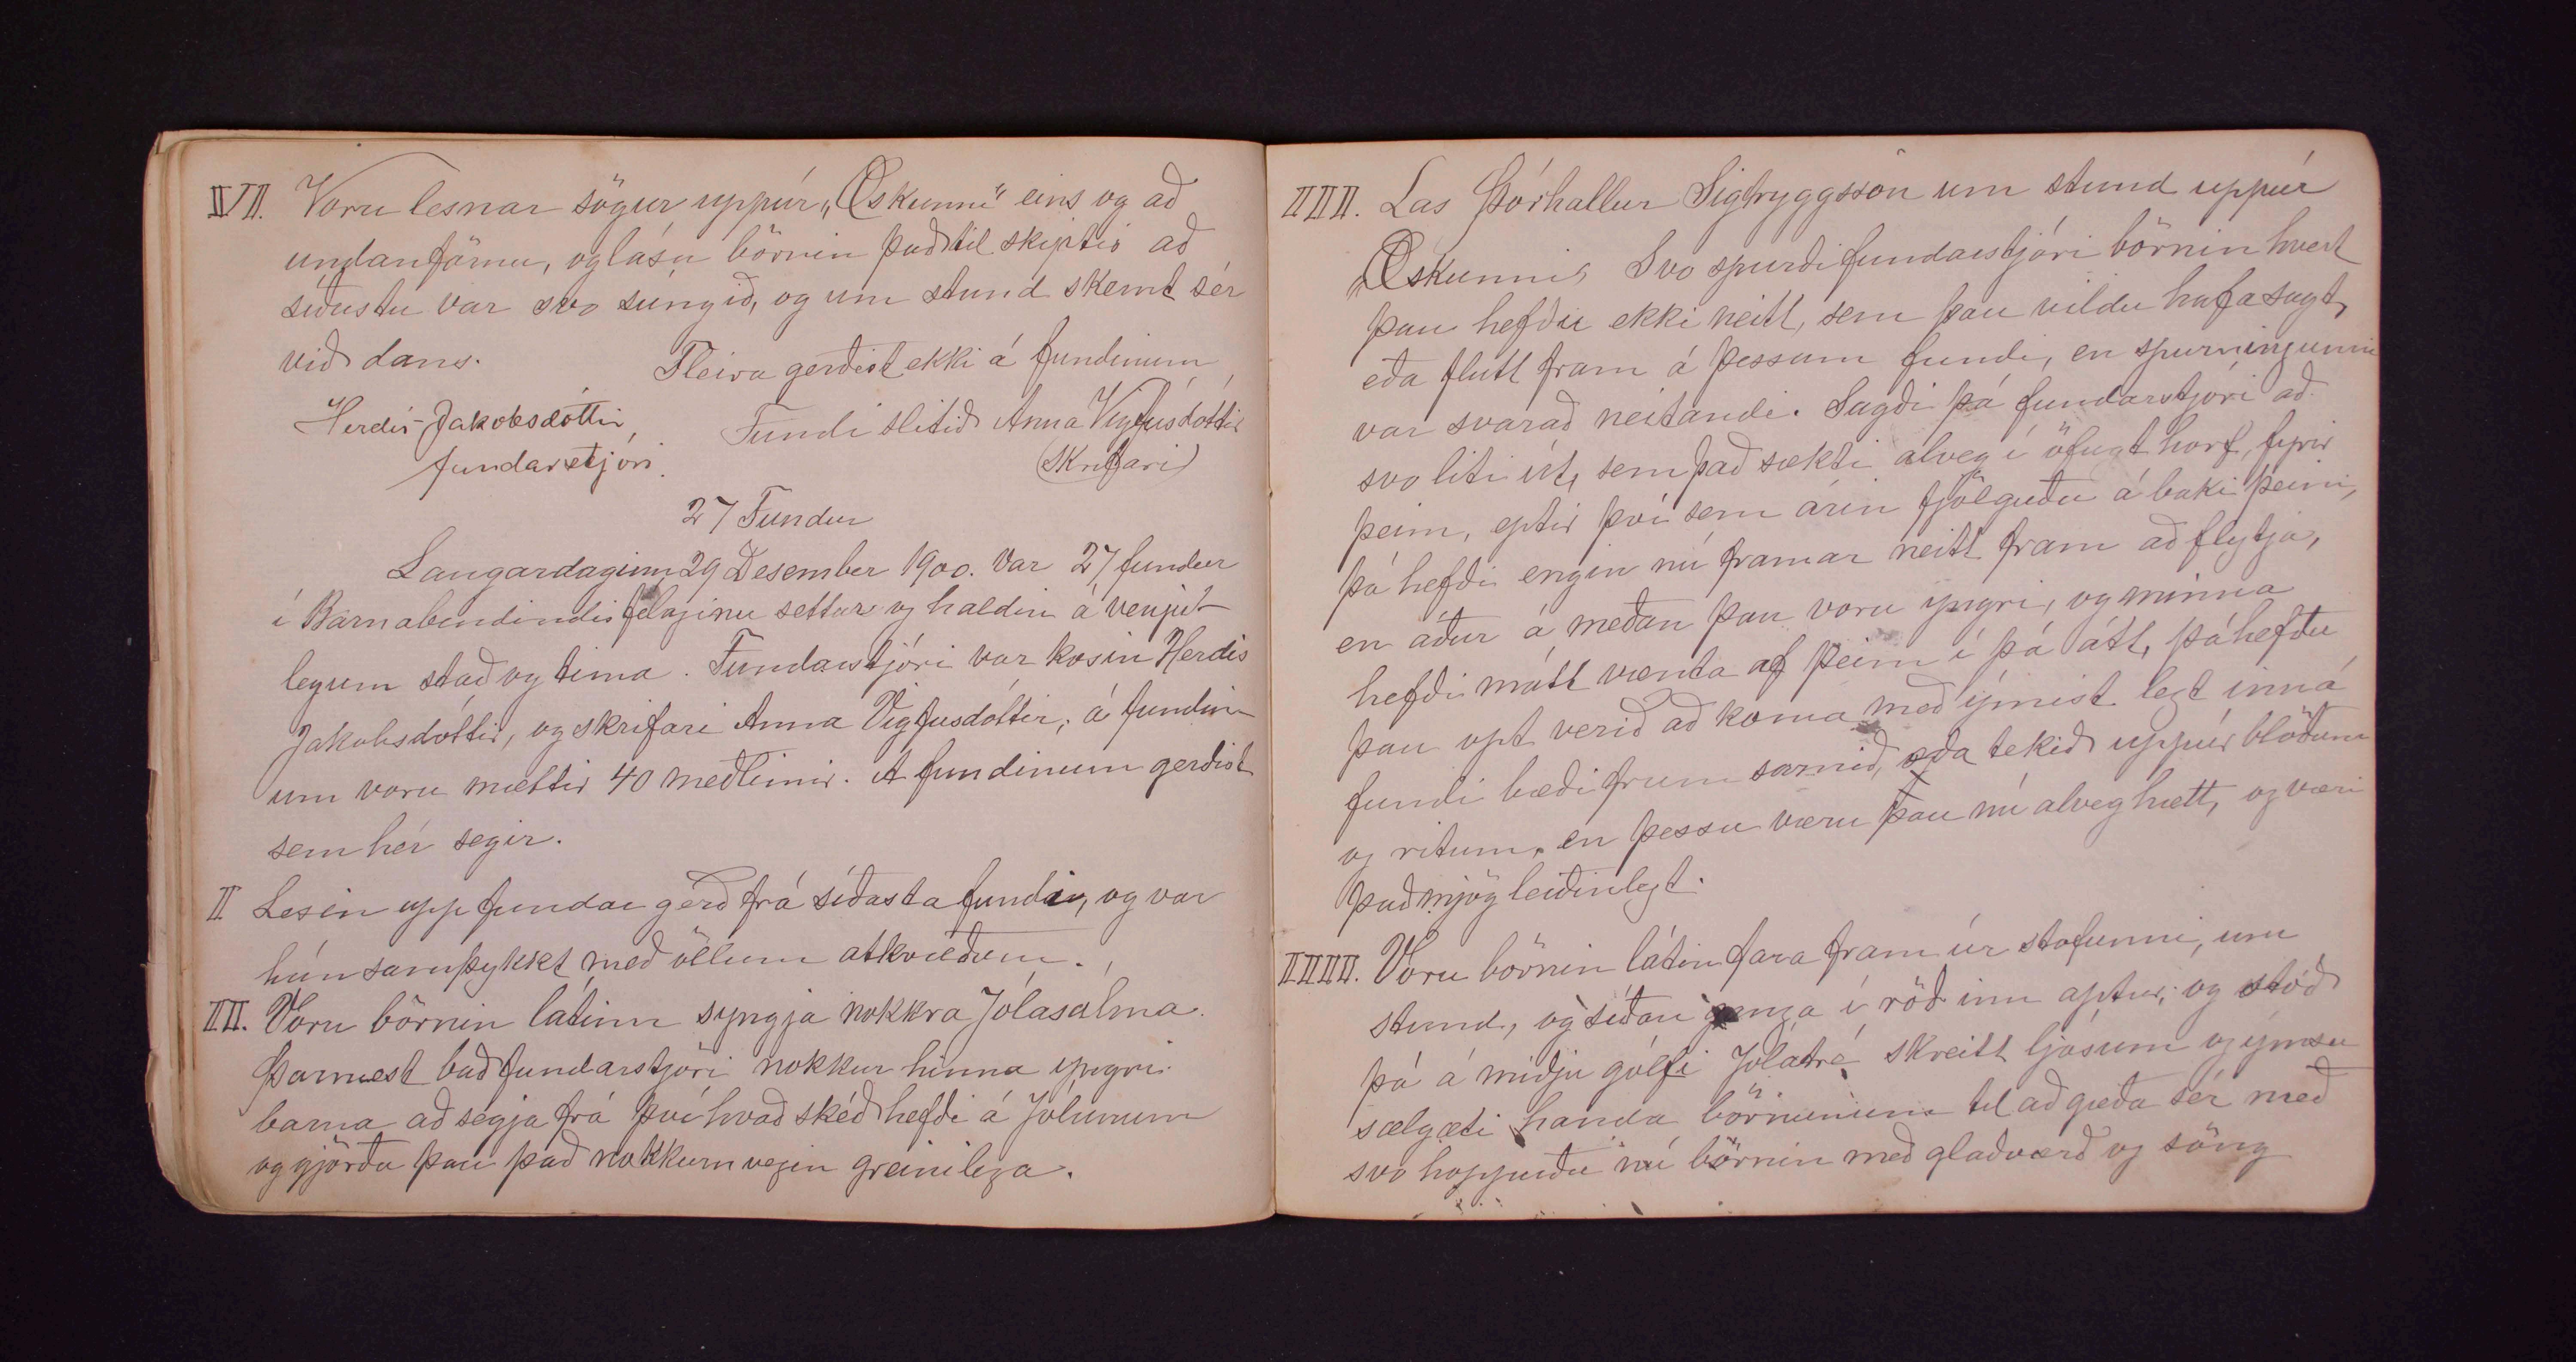 IVII. Voru lesnar sögur uppúr „Æskunni" eins og að
undanförnu, og lásu börnin það til skiptis að
síðustu var svo súngið, og um stund skemt sér
við dans. Fleira gerðist ekki á fundinum
Herdís Jakobsdóttir Fundi slitið Anna Vigfúsdóttir
fundarstjóri. (Skrifari)
27 Fundur
Laugardaginn 29 Desember 1900. Var 27 fundur
í Barnabindindisfélaginu settur og haldin á venju-
legum stað og tíma. Fundarstjóri var kosin Herdís
Jakobsdóttir, og skrifari Anna Vigfusdóttir; á fundin-
um voru mættir 40 meðlimir. A fundinum gerðist
sem hér segir.
II Lesin upp fundargerð frá síðasta fundi, og var
hún samþykkt með öllum atkvæðum.
III. Voru börnin látinn syngja nokkra Jólasálma.
Þarnæst bað fundarstjóri nokkur hinna yngri
barna að segja frá því hvað skéð hefði á Jólunum
og gjörðu þau það nokkurnvegin greinilega.
IIII. Las Þórhallur Sigtryggsson um stund uppúr
„Æskunni" Svo spurði fundarstjóri börnin hvert
þau hefðu ekki neitt, sem þau vildu hafa sagt,
eða flutt fram á þessum fundi, en spurningunni
var svarað neitandi. Sagði þá fundarstjóri að
svo liti út, sem það sækti alveg í öfugt horf, fyrir
þeim, eptir því sem árin fjölguðu á baki þeim,
þá hefði engin nú framar neitt fram að flytja,
en áður á meðan þau voru yngri, og minna
hefði mátt vænta af þeim í þá átt, þá hefðu
þau opt verið að koma með ýmist legt inná
fundi bæði frum samið, eða tekið uppúr blöðum
og ritum, en þessu væru þau nú alveg hætt, og væri
það mjög leiðinlegt.
IIIII. Voru börnin látin fara fram úr stofunni, um
stund, og síðan ganga í röð inn aptur, og stóð
þá á miðju gólfi Jólatré skreitt ljósum og ýmsu
sælgæti handa börnunum til að gæða sér með
svo hoppuðu nú börnin með glaðværð og söng